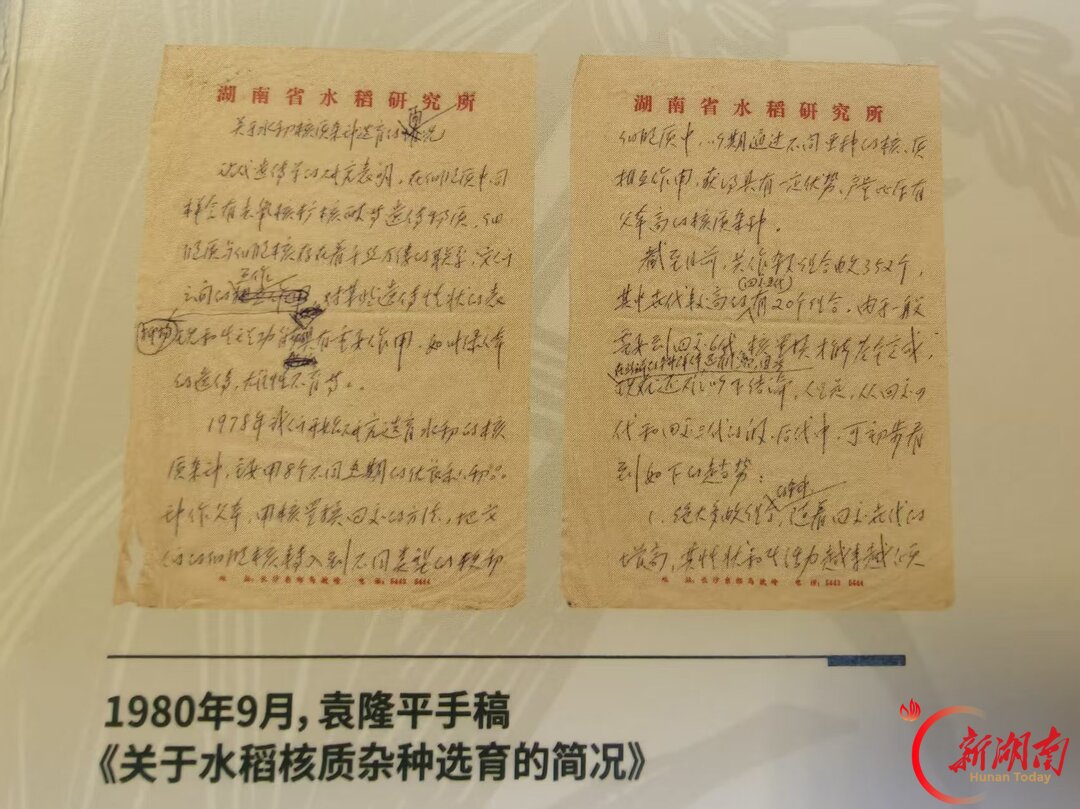 湖南省水稻研究所
关于水稻核质杂种选育的简况
近代遗传学的研究表明,在细胞质中同
样含有去氧核糖核酸等遗传物质。细
胞质与细胞核存在着千丝万缕的联系,它们
互作
之间的 对某些遗传性状的表
现和生立功能具有重要作用,如叶绿体
的遗传,雄性不育等。
1978年我们开始研究选育水稻的核
质杂种,主要用8个不同生期的优良
种作父本,用核置换回交的方法,把它
们的细胞核转入到不同类型的
地 址:长沙东郊马坡岭 电 话:5443 5444
湖南省水稻研究所
细胞质中,以期通过不同里种的核、质
相互作用,获得具有一定优势、产量比原有
父本高的核质杂种。
截至目前,共作了组合352个,
(回交四代)
其中世代较高的有20个组合。由于一般
需要到回交六代,核置换才能基本完成,
现在还难以下结论,但是,从回交四
代和回交三代的后代中,可初步看
到如下的趋势:
1、绝大多数组合,随着回交世代的
增高,其性状和生活力越来越
地 址:长沙东郊马坡岭 电 话:5443 5444
1980年9月,袁隆平手稿
《关于水稻核质杂种选育的简况》
新湖南
Hunan Today